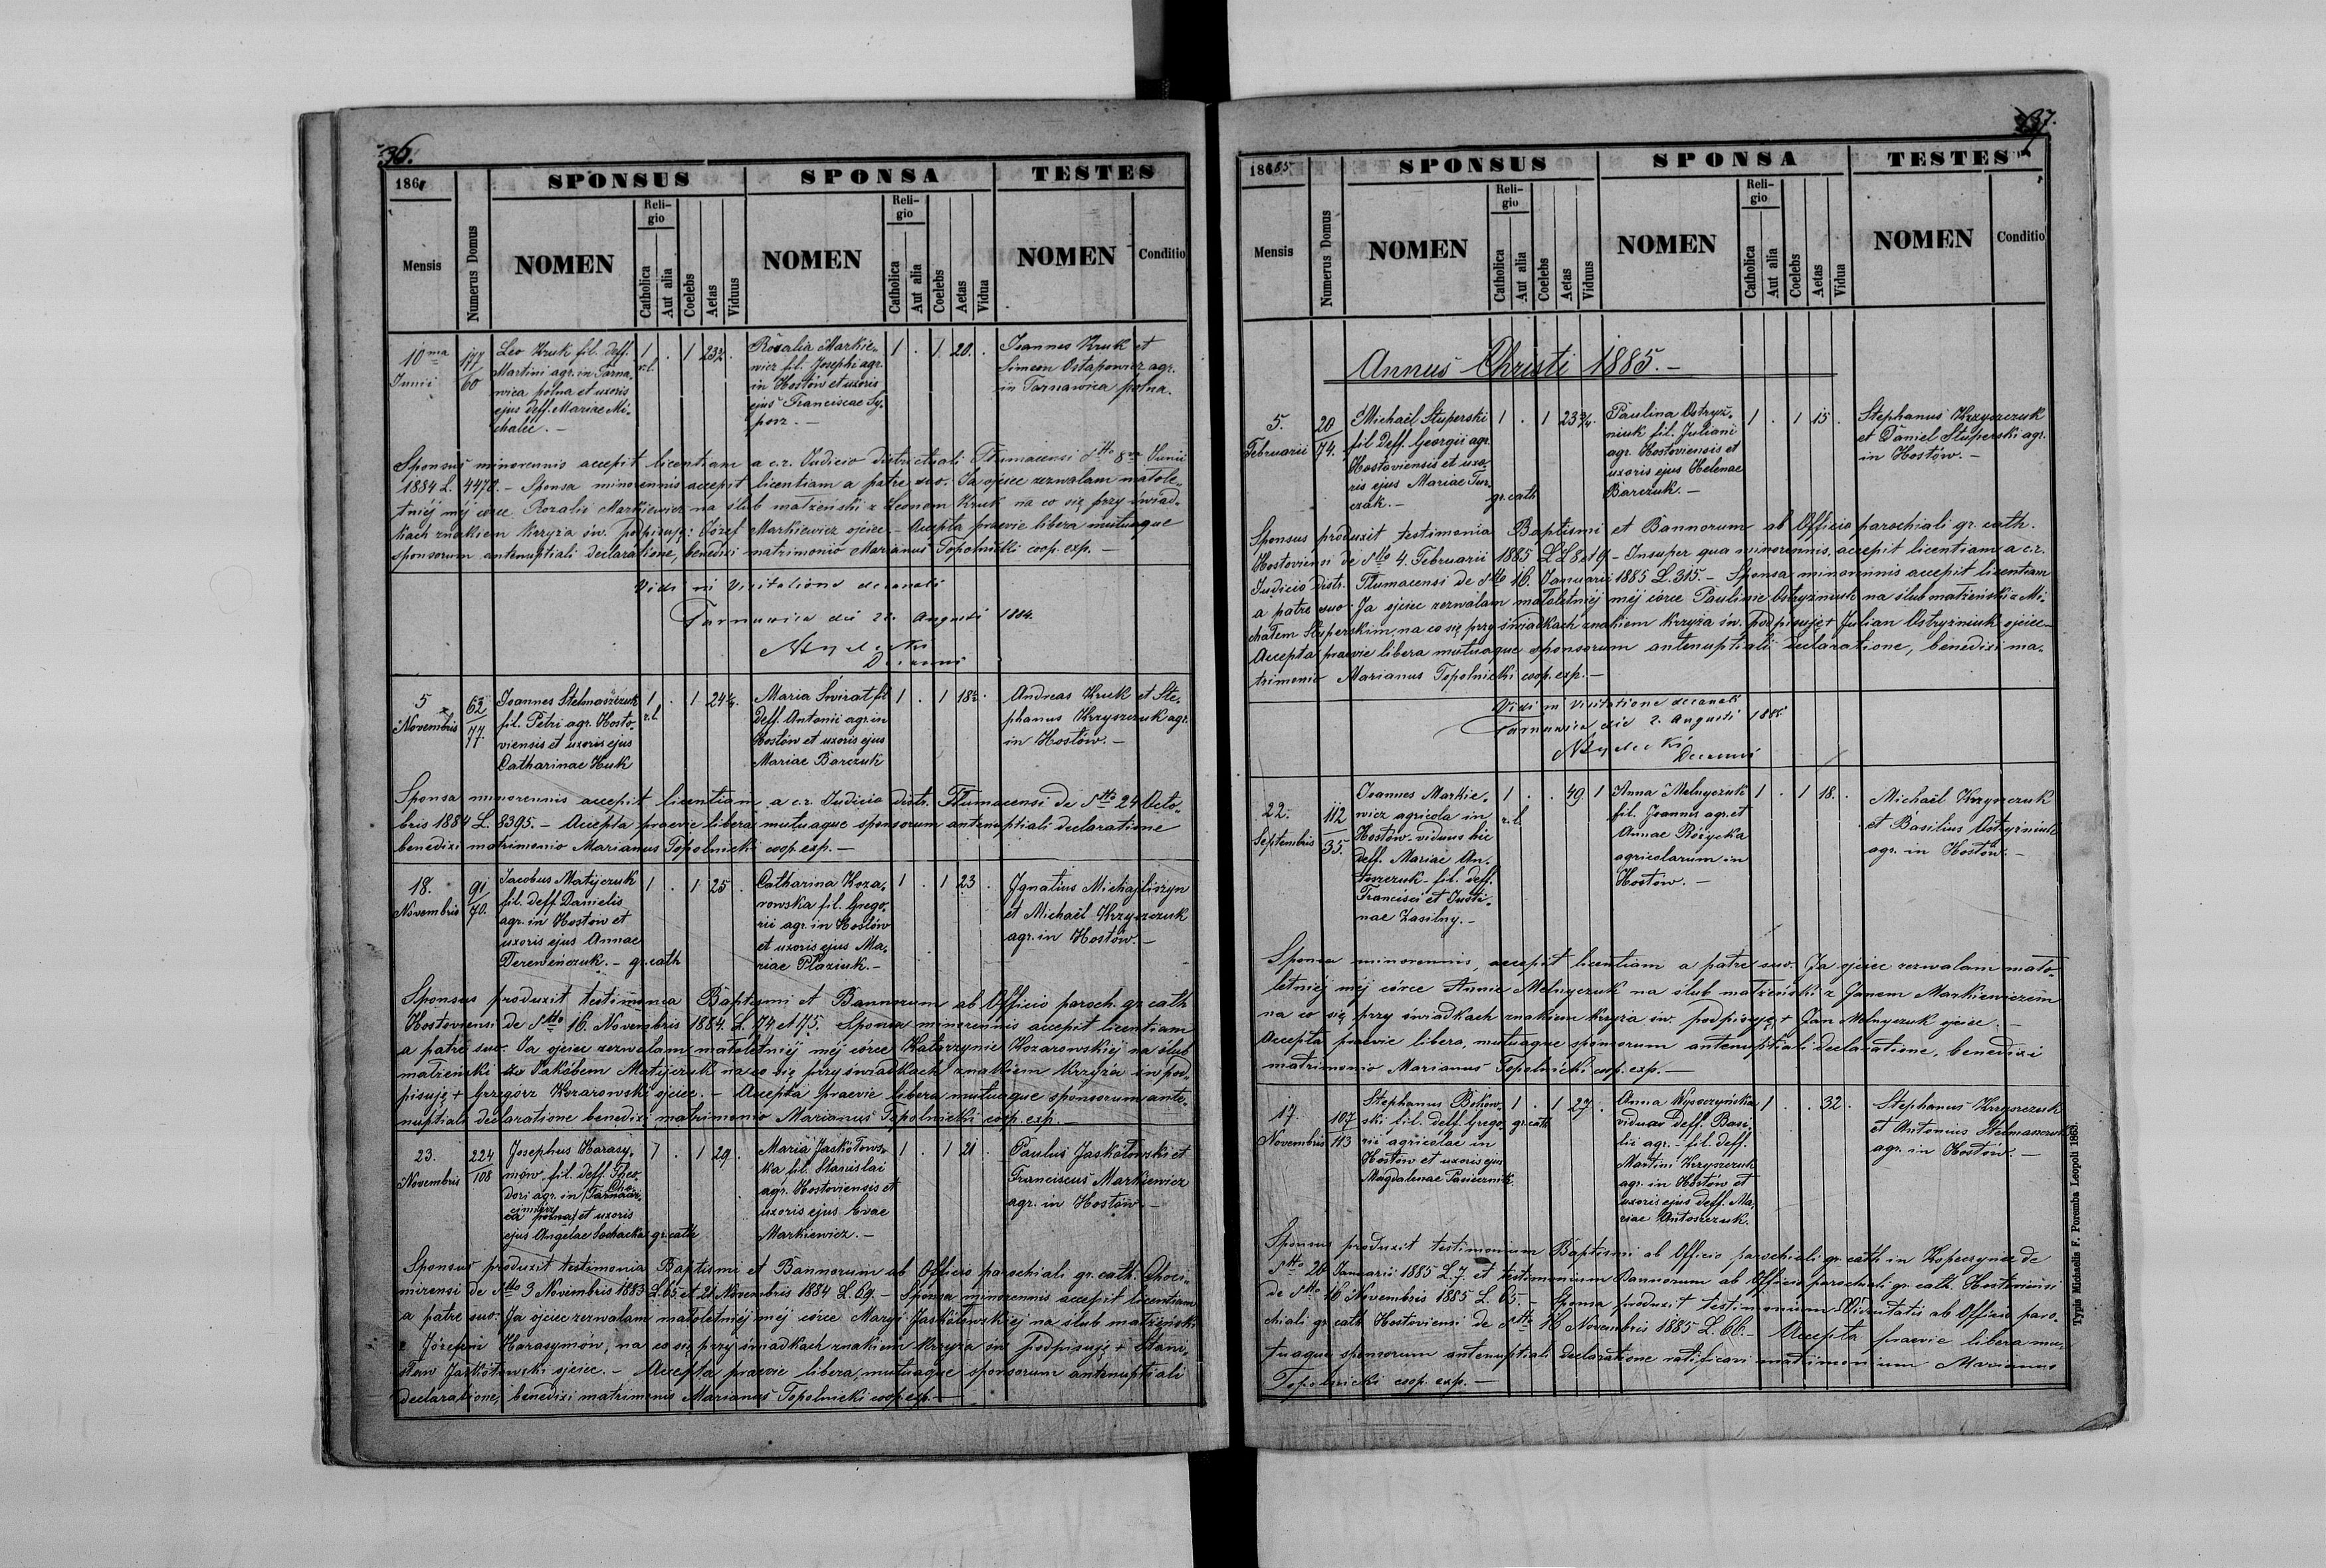 36.
186
SPONSUS SPONSA TESTES
Mensis
Numerus Domus
NOMEN
Religio
Catholica
Aut alia
Coelebs
Aetas
Viduus
NOMEN
Religio
Catholica
Aut alia
Coelebs
Aetas
Vidua
NOMEN
Conditio
10ma
Junii
177
60
Leo Kruk fil. deff.
Martini agr. in Tarna-
wica polna et uxoris
ejus deff. Mariae Mi-
chalec. —
1
r.l.
. 1 23½ .
Rozalia Markie-
wicz fil. Josephi agr.
in Hostów et uxoris
ejus Franciscae Sy-
porz. —
1 . 1. 20. .
Joannes Kruk et
Simeon Ostapowicz agr.
in Tarnawica polna.
Sponsus minorennis accepit licentiam a c.r. Judicio districtuali Tłumacensi dtto 8va Junii
1884 L. 4478. — Sponsa minorennis accepit licentiam a patre suo. Ja ojciec zezwalam małole-
tniéj méj córce Rozalie Markiewicz na ślub małżeński z Leonem Kruk na co się przy świad-
kach znakiem krzyża św. podpisuję: Józef Markiewicz ojciec. — Accepta praevie libera mutuaque
sponsorum antenuptiali declaratione, benedixi matrimonio Marianus Topolnicki coop. exp. —
Vidi in Visitatione decanali
Tarnawica die 22. Augusti 1884.
Decanus
5
Novembris
62
77.
Joannes Stelmaszczuk
fil. Petri agr. Hosto-
viensis et uxoris ejus
Catharinae Huk
1
r.l.
. 1 24¼.
Maria Świrat fil.
deff. Antonii agr. in
Hostów et uxoris ejus
Mariae Barczuk
1 . 1 18½.
Andreas Kruk et Ste-
phanus Krzyszczuk agr.
in Hostów. —
Sponsa minorennis accepit licentiam a c.r. Judicio distr. Tłumacensi de dtto 24 Octo-
bris 1884 L. 8395. — Accepta praevie libera mutuaque sponsorum antenuptiali declaratione
benedixi matrimonio Marianus Topolnicki coop. exp. —
18.
Novembris
91
70.
Jacobus Matijczuk
fil. deff. Danielis
agr. in Hostow et
uxoris ejus Annae
Derewińczuk. — gr. cath
1 . 1 25 .
Catharina Koza-
rowska fil. Grego-
rii agr. in Hostów
et uxoris ejus Ma-
riae Płaziuk. —
1 . 1 23 .
Ignatius Michajliszyn
et Michaël Krzyszczuk
agr. in Hostów. —
Sponsus produxit testimonia Baptismi et Bannorum ab Officio paroch. gr. cath
Hostoviensi de dtto 16. Novembris 1884. L. 74 et 75. Sponsa minorennis accepit licentiam
a patre suo. Ja ojciec zezwalam małoletniéj méj córce Katarzynie Kozarowskiéj na ślub
małżeński z Jakóbem Matijczuk na co się przy świadkach znakiem krzyża św pod-
pisuję + Grzegórz Kozarowski ojciec. — Accepta praevie libera mutuaque sponsorum ante-
nuptiali declaratione benedixi matrimonio Marianus Topolnicki coop. exp. —
23.
Novembris
224
108
Josephus Harasy-
mów fil. deff. Theo-
dori agr. in Tarnawi- Cho-
ca polna cimierz et uxoris
ejus Angelae Sochacka gr. cath
1 . 1 29 .
Maria Jaskołows-
ka fil. Stanislai
agr. Hostoviensis et
uxoris ejus Evae
Markiewicz. —
1 . 1 21 .
Paulus Jaskółowski et
Franciscus Markiewicz
agr. in Hostów. —
Sponsus produxit testimonia Baptismi et Bannorum ab Officio parochiali gr. cath. Choci-
mirensi de dtto 3 Novembris 1883 L. 65 et 21 Novembris 1884 L. 69. — Sponsa minorennis accepit licentiam
a patre suo. Ja ojciec zezwalam małoletniéj méj córce Maryi Jaskółowskiej na ślub małżeński
z Józefem Harasymów, na co się przy świadkach znakiem krzyża św podpisuję + Stani-
sław Jaskółowski ojciec. — Accepta praevie libera, mutuaque sponsorum antenuptiali
declaratione, benedixi matrimonio Marianus Topolnicki coop. exp. —
37.
1885
SPONSUS SPONSA TESTES
Mensis
Numerus Domus
NOMEN
Religio
Catholica
Aut alia
Coelebs
Aetas
Viduus
NOMEN
Religio
Catholica
Aut alia
Coelebs
Aetas
Vidua
NOMEN
Conditio
Annus Christi 1885. —
5.
Februarii
20
74.
Michaël Stuperski
fil deff. Georgii agr.
Hostoviensis et uxo-
ris ejus Mariae Tur-
czak. —
gr. cath
1 . 1 23¾.
Paulina Ostryż-
niuk fil. Juliani
agr. Hostoviensis et
uxoris ejus Helenae
Barczuk. —
1 . 1 15 .
Stephanus Krzyszczuk
et Daniel Stuperski agr.
in Hostów. —
Sponsus produxit testimonia Baptismi et Bannorum ab Officio parochiali gr. cath.
Hostoviensi de dtto 4. Februarii 1885 LL 8 et 19. — Insuper qua minorennis, accepit licentiam a c.r.
Judicio distr. Tłumacensi de dtto 16. Januarii 1885 L. 315. — Sponsa minorennis accepit licentiam
a patre suo. Ja ojciec zezwalam małoletniéj méj córce Paulinie Ostryżniuk na ślub małżeński z Mi-
chałem Stuperskim, na co się przy świadkach znakiem krzyża św. podpisuję + Julian Ostryżniuk ojciec —
Accepta praevie libera mutuaque sponsorum antenuptiali declaratione, benedixi ma-
trimonio Marianus Topolnicki coop. exp. —
Vidi in Visitatione decanali
Tarnawica die 2. Augusti 1885
Decanus
22.
Septembris
112
35.
Joannes Markie-
wicz agricola in
Hostów - viduus hic
deff. Mariae An-
toszczuk - fil. deff.
Francisci et Justi-
nae Zasilny. —
1
r.l.
. . 49 1
Anna Melnyczuk
fil. Joannis agr. et
Annae Różycka
agricolarum in
Hostów. —
1 . 1 18. .
Michaël Krzyszczuk
et Basilius Ostryżniuk
agr. in Hostów. —
Sponsa minorennis, accepit licentiam a patre suo. Ja ojciec zezwalam mało-
letniéj méj córce Annie Melnyczuk na ślub małżeński z Janem Markiewiczem
na co się przy świadkach znakiem krzyża św. podpisuję + Jan Melnyczuk ojciec. —
Accepta praevie libera, mutuaque sponsorum antenuptiali declaratione, benedixi
matrimonio Marianus Topolnicki coop. exp. —
17.
Novembris
107
113
Stephanus Bokow-
ski fil. deff. Grego-
rii agricolae in
Hostów et uxoris ejus
Magdalenae Pasiecznik.
1
gr. cath
. 1 27 .
Anna Wysoczyńska
vidua deff. Basi-
lii agr. - fil. deff.
Martini Krzyszczuk
agr. in Hostów et
uxoris ejus deff. Ma-
riae Antoszczuk.
1 . . 32 .
Stephanus Krzyszczuk
et Antonius Stelmaszczuk
agr. in Hostów. —
Sponsus produxit testimonium Baptismi ab Officio parochiali gr. cath in Kopeczyńce de
dtto 26 Januarii 1885 L. 7. et testimonium Bannorum ab Officio parochiali gr. cath. Hostoviensi
de dtto 16 Novembris 1885 L. 65. — Sponsa produxit testimonium Viduitatis ab Officio paro-
chiali gr. cath Hostoviensi de dtto 16 Novembris 1885 L. 66. — Accepta praevie libera mu-
tuaque sponsorum antenuptiali declaratione ratificavi matrimonium Marianus
Topolnicki coop. exp. —
Typis Michaelis F. Poremba Leopoli 1863.